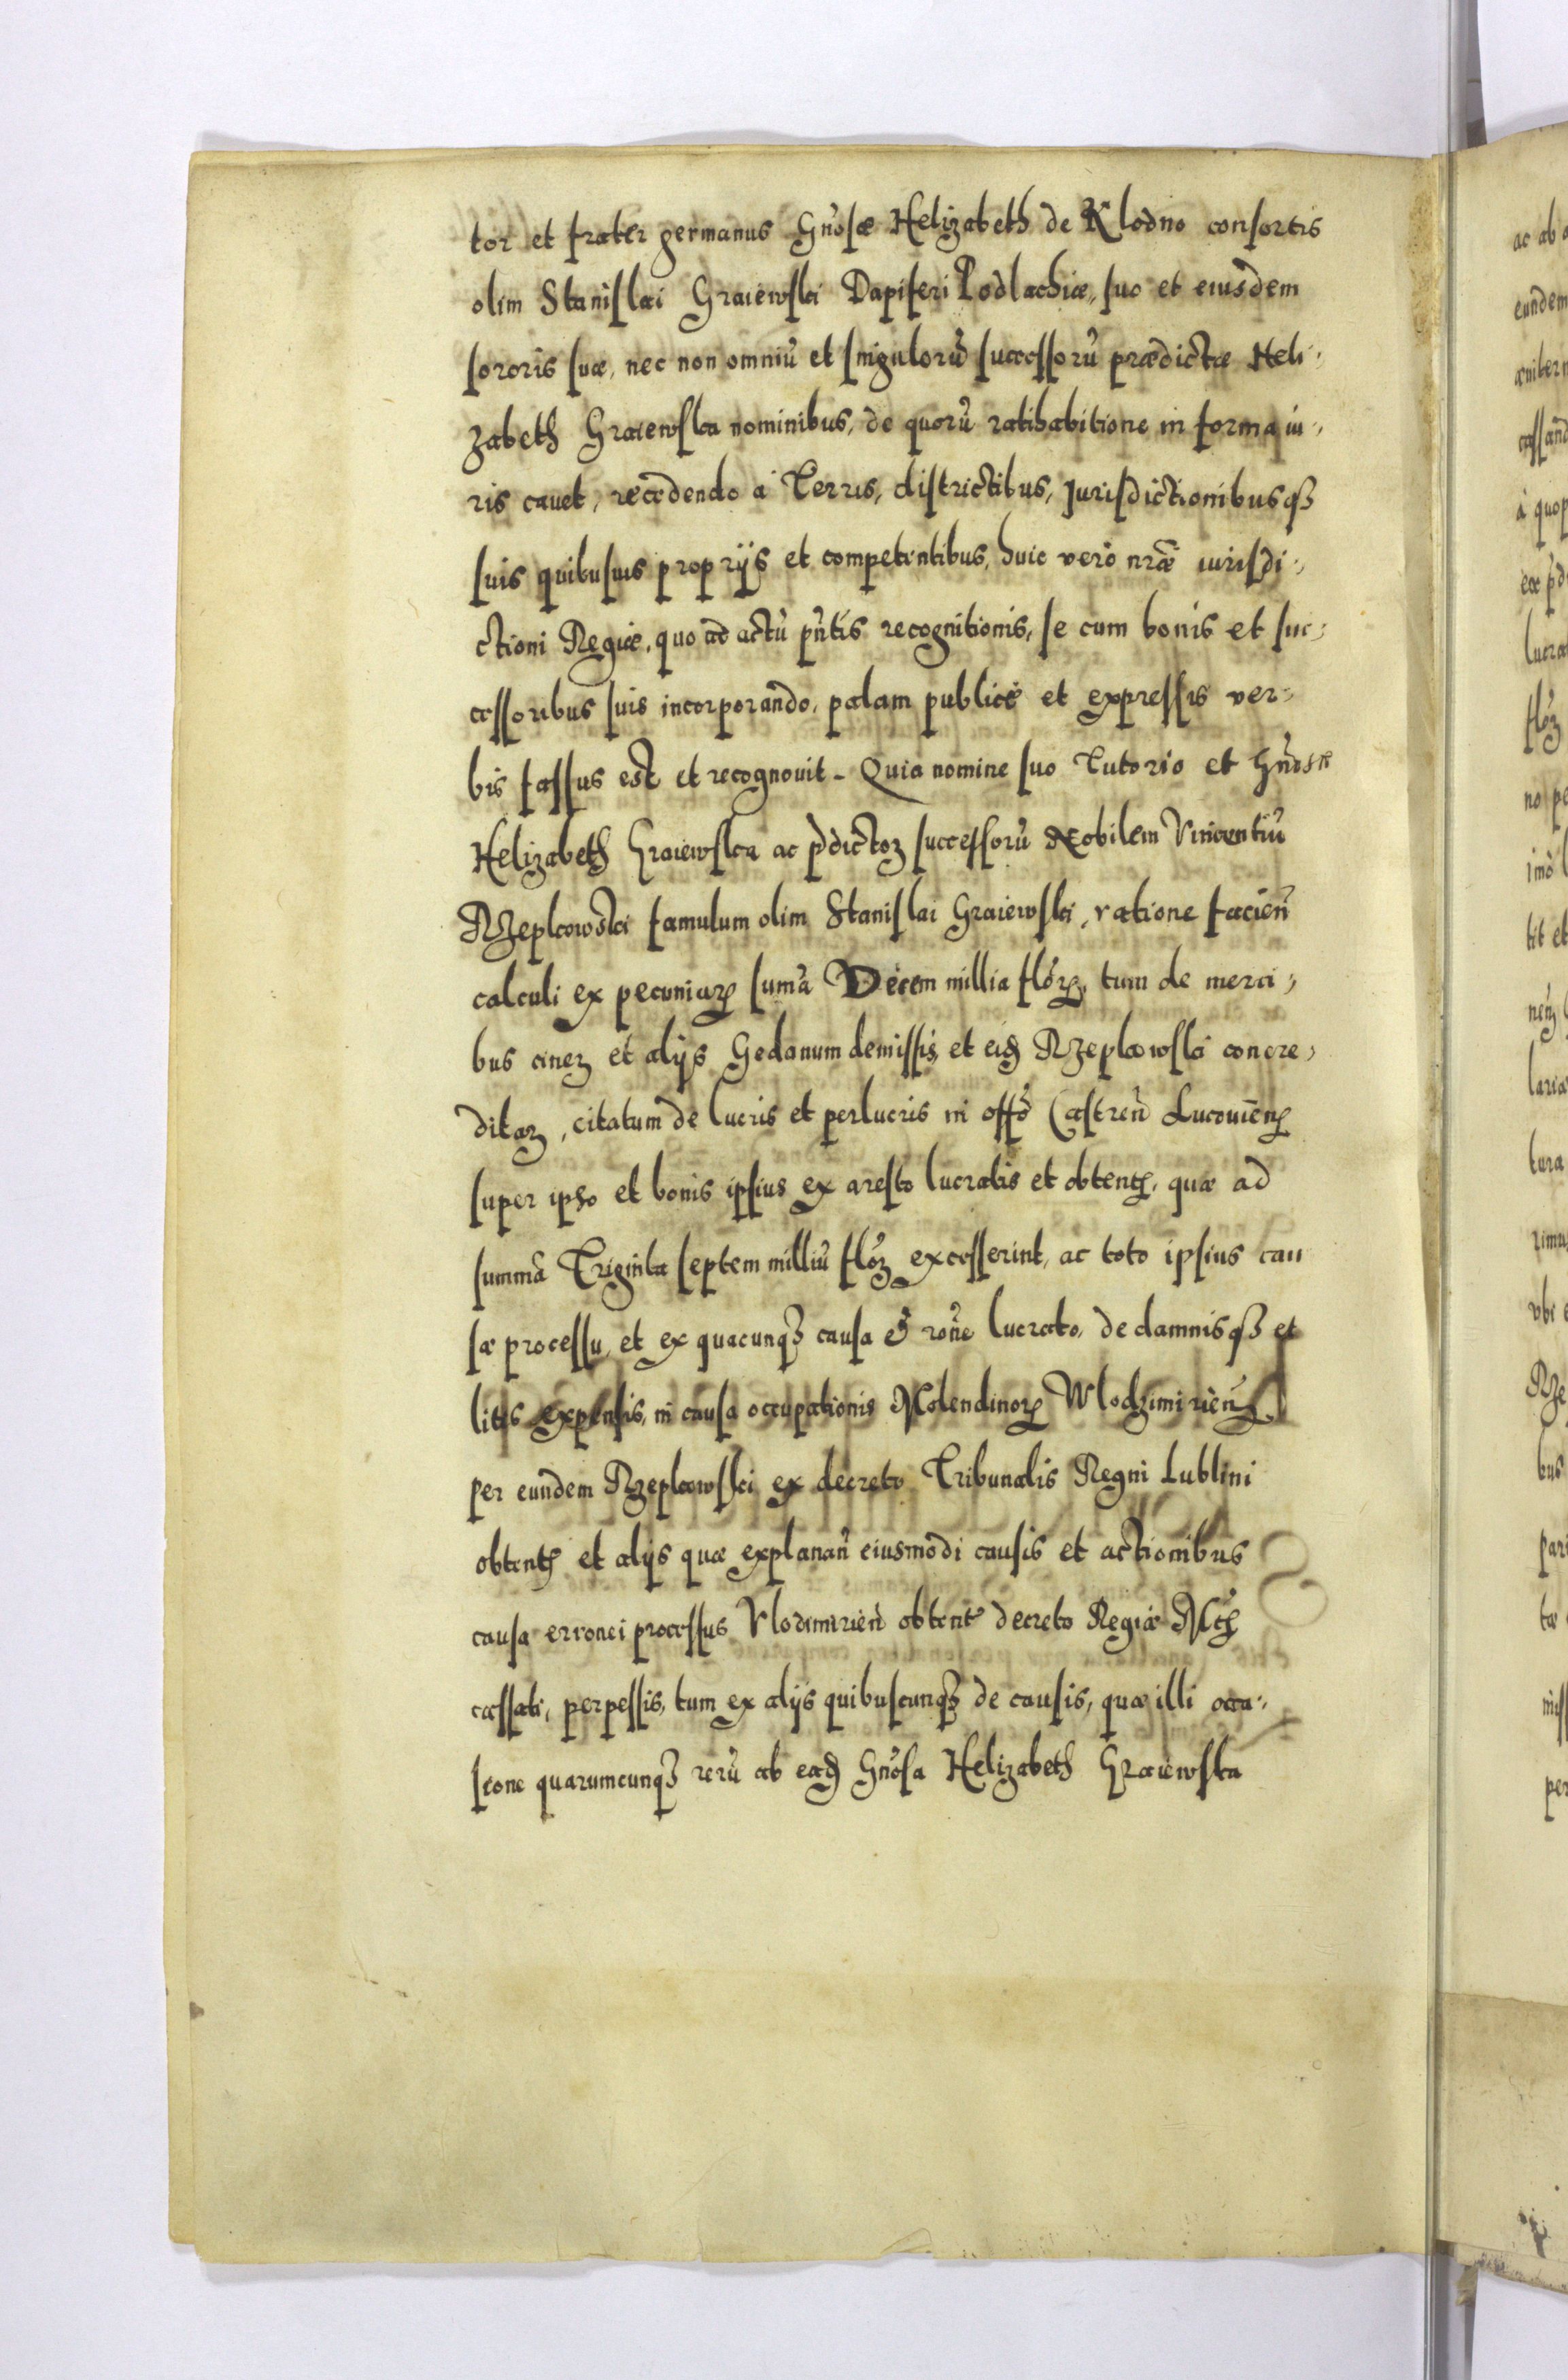 tor et frater germanus Gn̄osæ Helizabeth de Klodno consortis
olim Stanislai Graiewski Dapiferi Podlachiæ, suo et eiusdem
sororis suæ, nec non omniū et singulorū successorū prædictæ Heli-
zabeth Graiewska nominibus, de quorū ratihabitione in forma iu-
ris cauet, recedendo à Terris, districtibus, Jurisdictionibusqȝ
suis quibusuis proprijs et competentibus, huic verò nr̄æ iurisdi-
ctioni Regiæ, quo ad actū pn̄tis recognitionis, se cum bonis et suc-
cessoribus suis incorporando, palam publicè et expressis ver-
bis fassus est et recognouit - Quia nomine suo Tutorio et Gn̄osæ
Helizabeth Graiewska ac p̄dictoꝝ successorū Nobilem Vincentiū
Rzepkowski famulum olim Stanislai Graiewski, ratione facien̄
calculi ex pecuniarꝫ sum̄a Decem millia flōrꝫ, tum de merci-
bus cineꝝ et alijs Gedanum demissis, et eid Rzepkowski concre-
ditaꝝ, citatum de lucris et perlucris in offō Castren̄ Lucouien̄
super ipso et bonis ipsius ex aresto lucratis et obtent, quæ ad
summā Triginta septem milliū flōꝝ excesserint, ac toto ipsius cau
sæ processu, et ex quacunqȝ causa et ron̄e lucrato, de damnisqȝ et
litis expensis, in causa occupationis Molendinorꝫ Wlodzimirien̄
per eundem Rzepkowski ex decreto Tribunalis Regni Lublini
obtent et alijs quæ explanan̄ eiusmodi causis et actionibus
causa erronei processus Vlodimirien̄ obtent decreto Regiæ Mt̄
cassati, perpessis, tum ex alijs quibuscunqȝ de causis, quæ illi occa-
sione quarumcunqȝ rerū ab ead Gn̄osa Helizabeth Graiewska